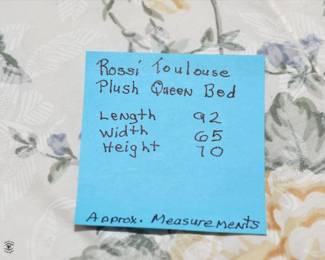 Rossi Toulouse
Plush Queen Bed
Length 92
Width 65
Height 70
Approx. Measurements